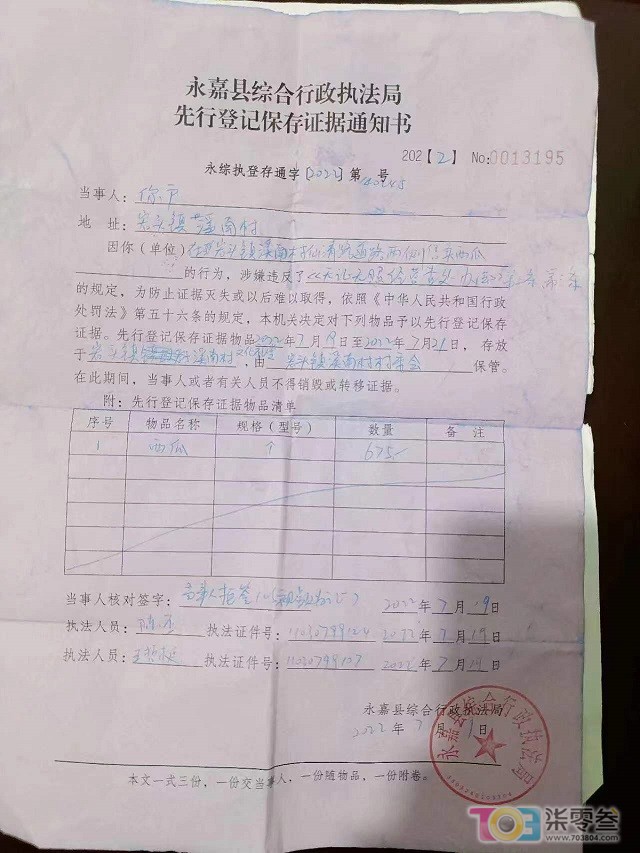 永嘉县综合行政执法局
先行登记保存证据通知书
202【2】 No:0013195
永综执登存通字[2022]第 号
当事人:
地 址:岩头镇溪南村
因你(单位)在 岩头镇溪南村仙清路道路两侧 卖西瓜
的行为,涉嫌违反了《无证无照经营查处办法》第二条 第 条
的规定,为防止证据灭失或以后难以取得,依照《中华人民共和国行政
处罚法》第五十六条的规定,本机关决定对下列物品予以先行登记保存
证据。先行登记保存证据物品2022年7月19日至2022年7月21日,存放
于岩头镇 溪南村 ,由 岩头镇溪南村村委会 保管。
在此期间,当事人或者有关人员不得销毁或转移证据。
附:先行登记保存证据物品清单
序号 物品名称 规格(型号) 数量 备 注
1 西瓜 个 675
当事人核对签字:当事人拒签 2022年7月19日
执法人员: 执法证件号:11030799124 2022年7月19日
执法人员: 执法证件号:11030799107 2022年7月19日
永嘉县综合行政执法局
2022年7月19日
永嘉县综合行政执法局
本文一式三份,一份交当事人,一份随物品,一份附卷。
703 柒零叁
www.703804.com